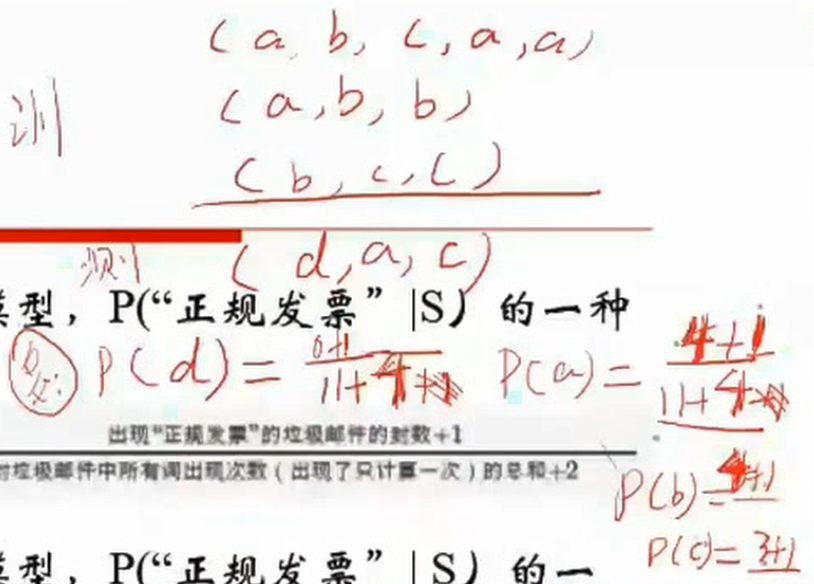 (a, b, c, a, a)
训 (a, b, b)
(b, c, c)
测 (d, a, c)
模型，P(“正规发票” |S）的一种
P(d) = 0+1 / 11+4 P(a) = 4+1 / 11+4
出现“正规发票”的垃圾邮件的封数+1
对垃圾邮件中所有词出现次数（出现了只计算一次）的总和+2
P(b) = 4+1
P(c) = 3+1
模型，P(“正规发票” |S）的一